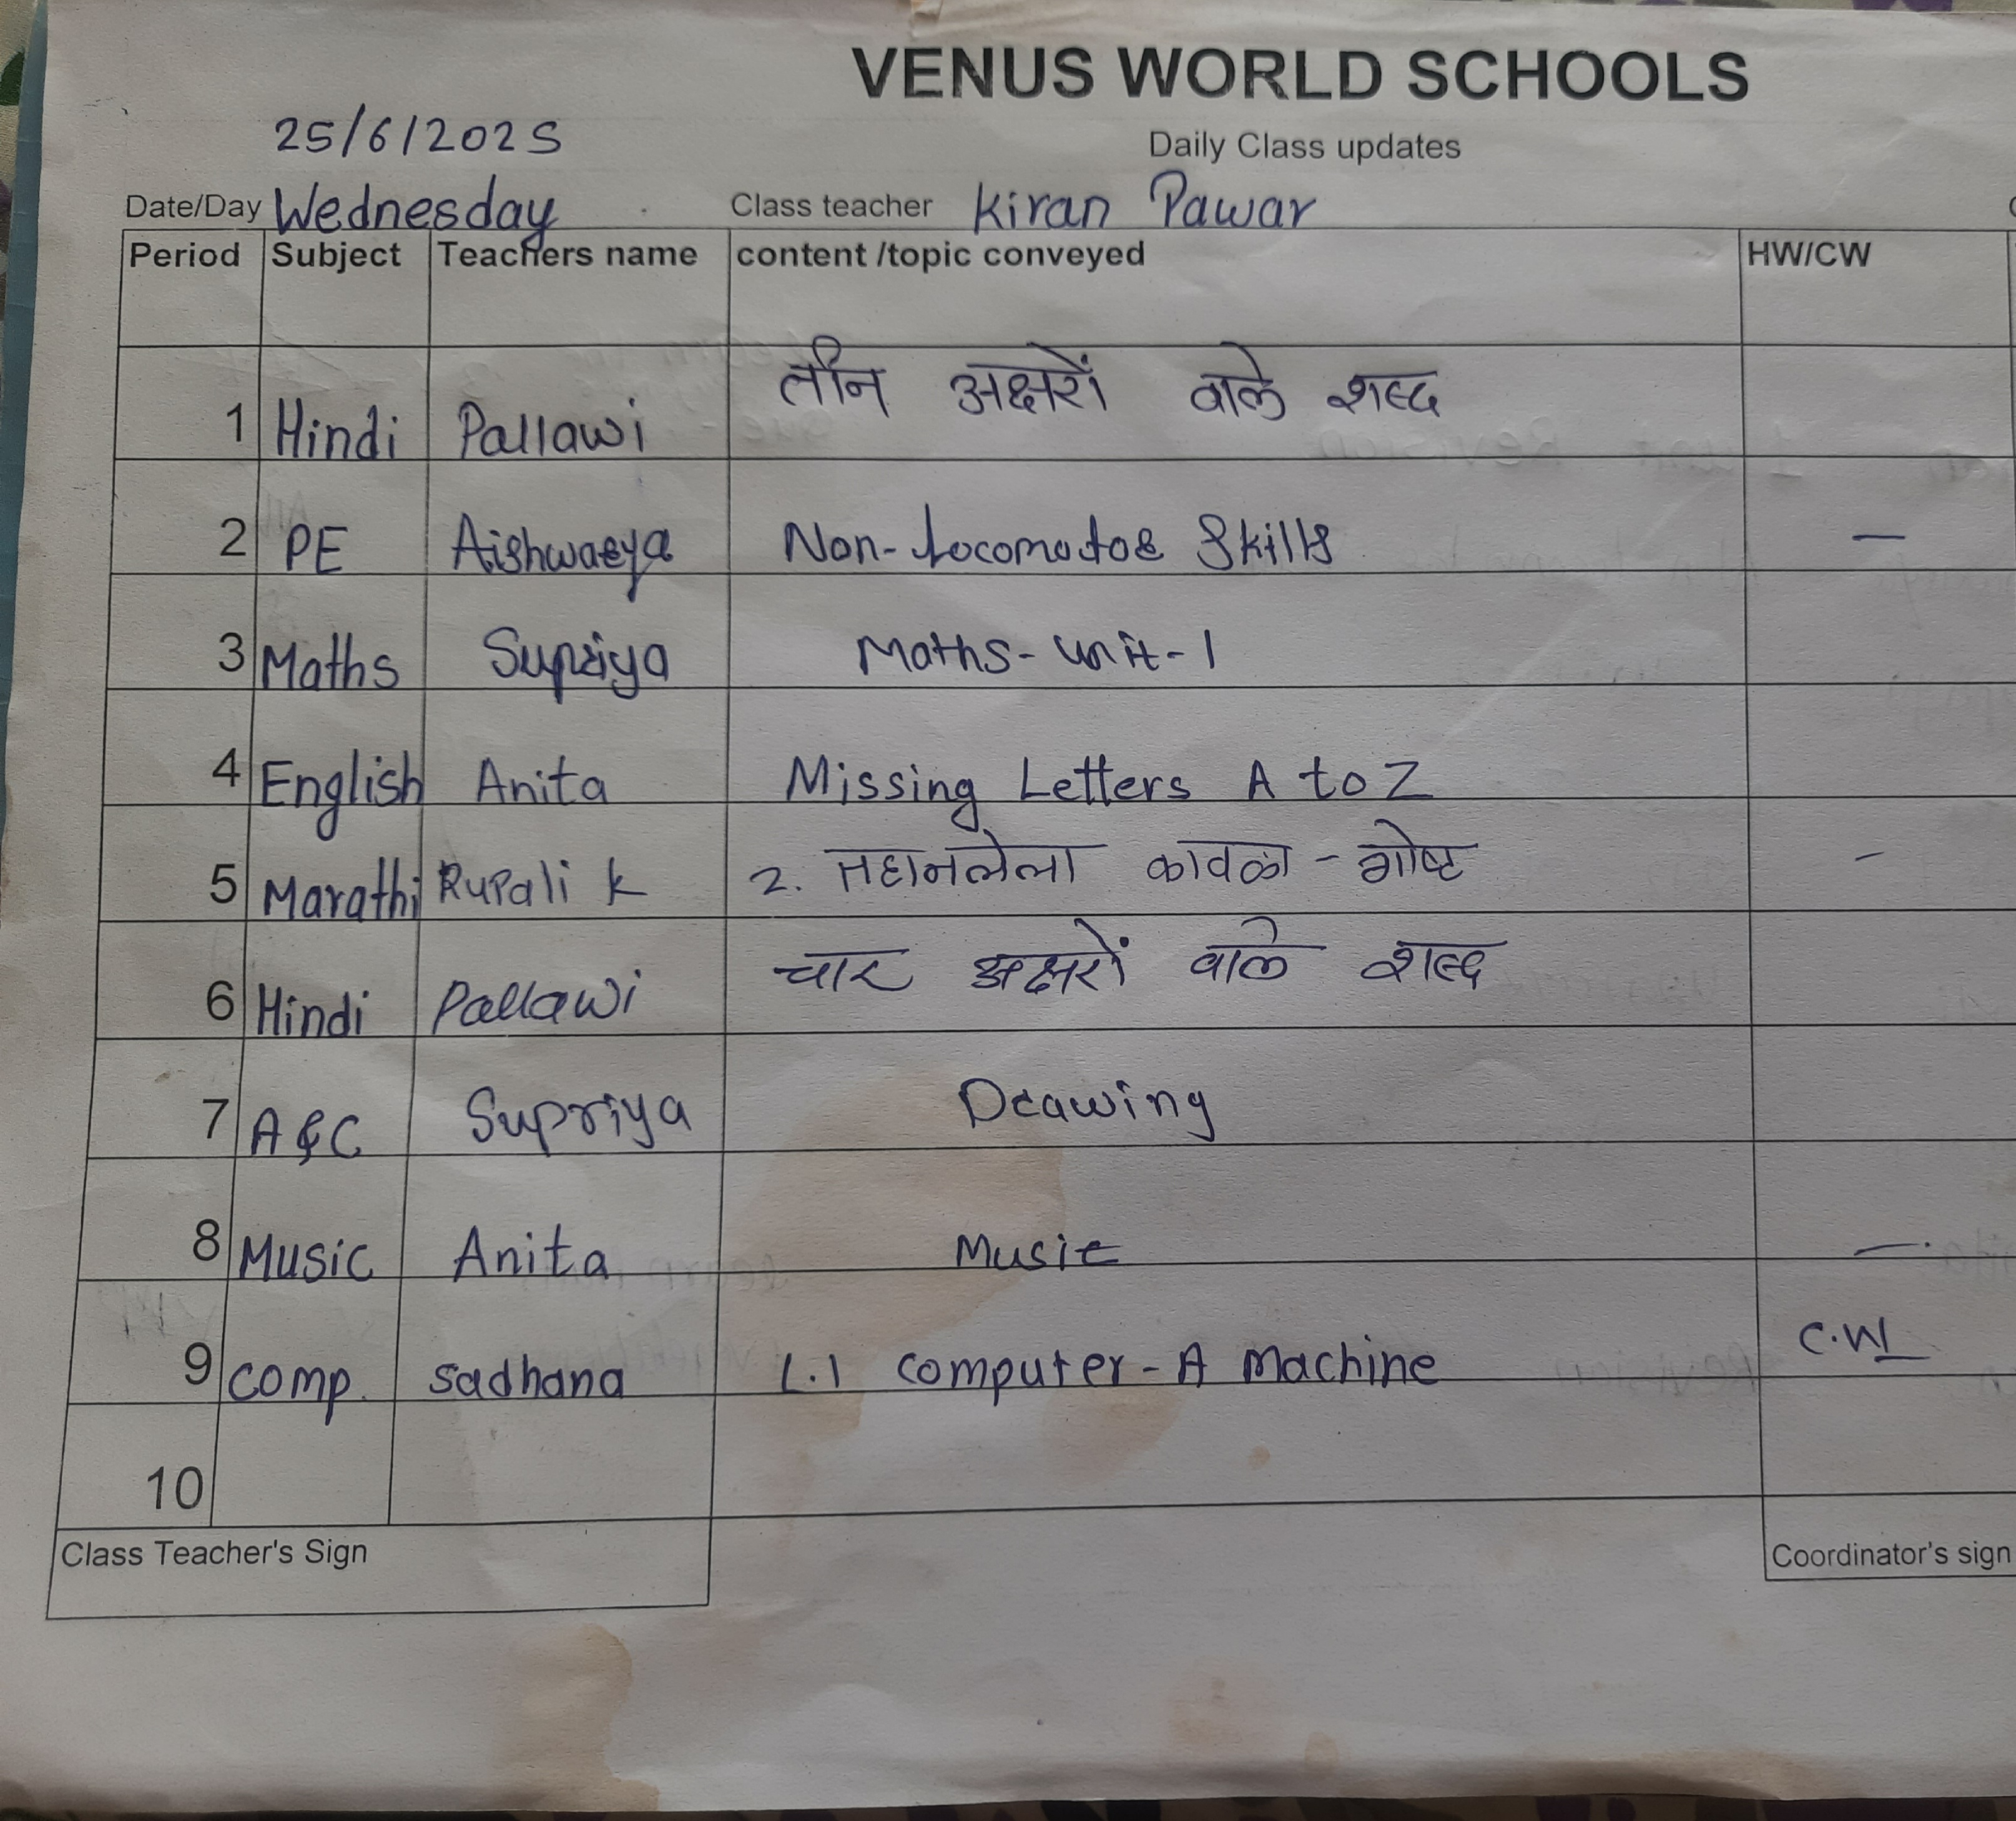 VENUS WORLD SCHOOLS
25/6/2025
Daily Class updates
Date/Day Wednesday Class teacher Kiran Pawar
Period Subject Teachers name content /topic conveyed HW/CW
1 Hindi Pallawi तीन अक्षरों वाले शब्द
2 PE Aishwarya Non-Locomotor Skills —
3 Maths Supriya Maths-unit-1
4 English Anita Missing Letters A to Z
5 Marathi Rupali K 2. तहानलेला कावळा - गोष्ट -
6 Hindi Pallawi चार अक्षरों वाले शब्द
7 A&C Supriya Drawing
8 Music Anita Music —.
9 Comp. Sadhana 1.1 Computer-A Machine C.W
10
Class Teacher's Sign Coordinator's sign